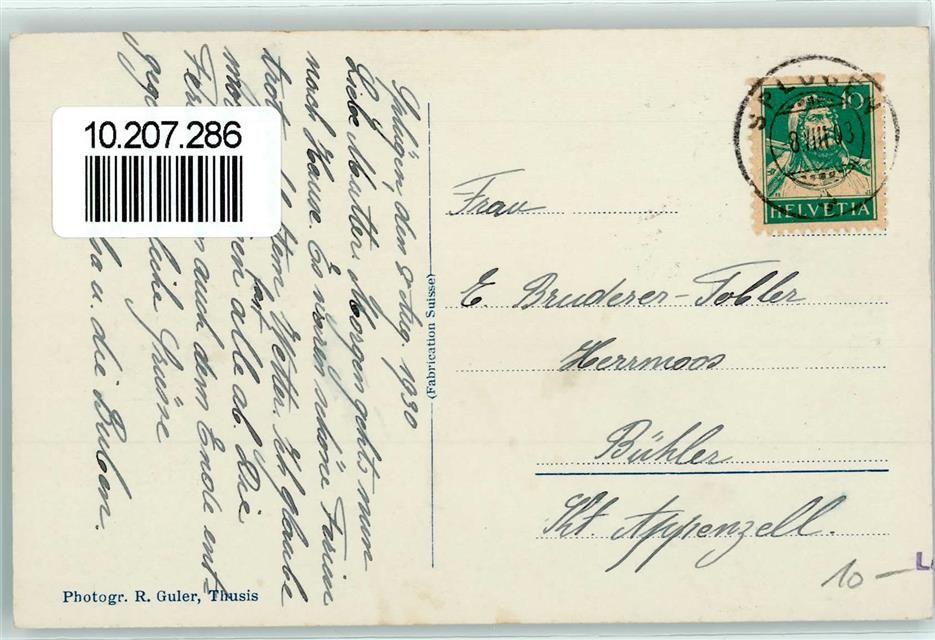 Splügen, den 8. Aug. 1930
Liebe Mutter! Morgen gehts nun
nach Hause. Es waren schöne Ferien
trotz dem Wetter. Ich glaube
alle ab. Die
fort
auch dem Ende ent-
Grüsse
u. die Buben.
(Fabrication Suisse)
Photogr. R. Guler, Thusis
10.207.286
SPLÜGEN
8.VIII.
10
HELVETIA
Frau
E. Bruderer-Tobler
Herrmoos
Bühler
Kt. Appenzell.
10 —